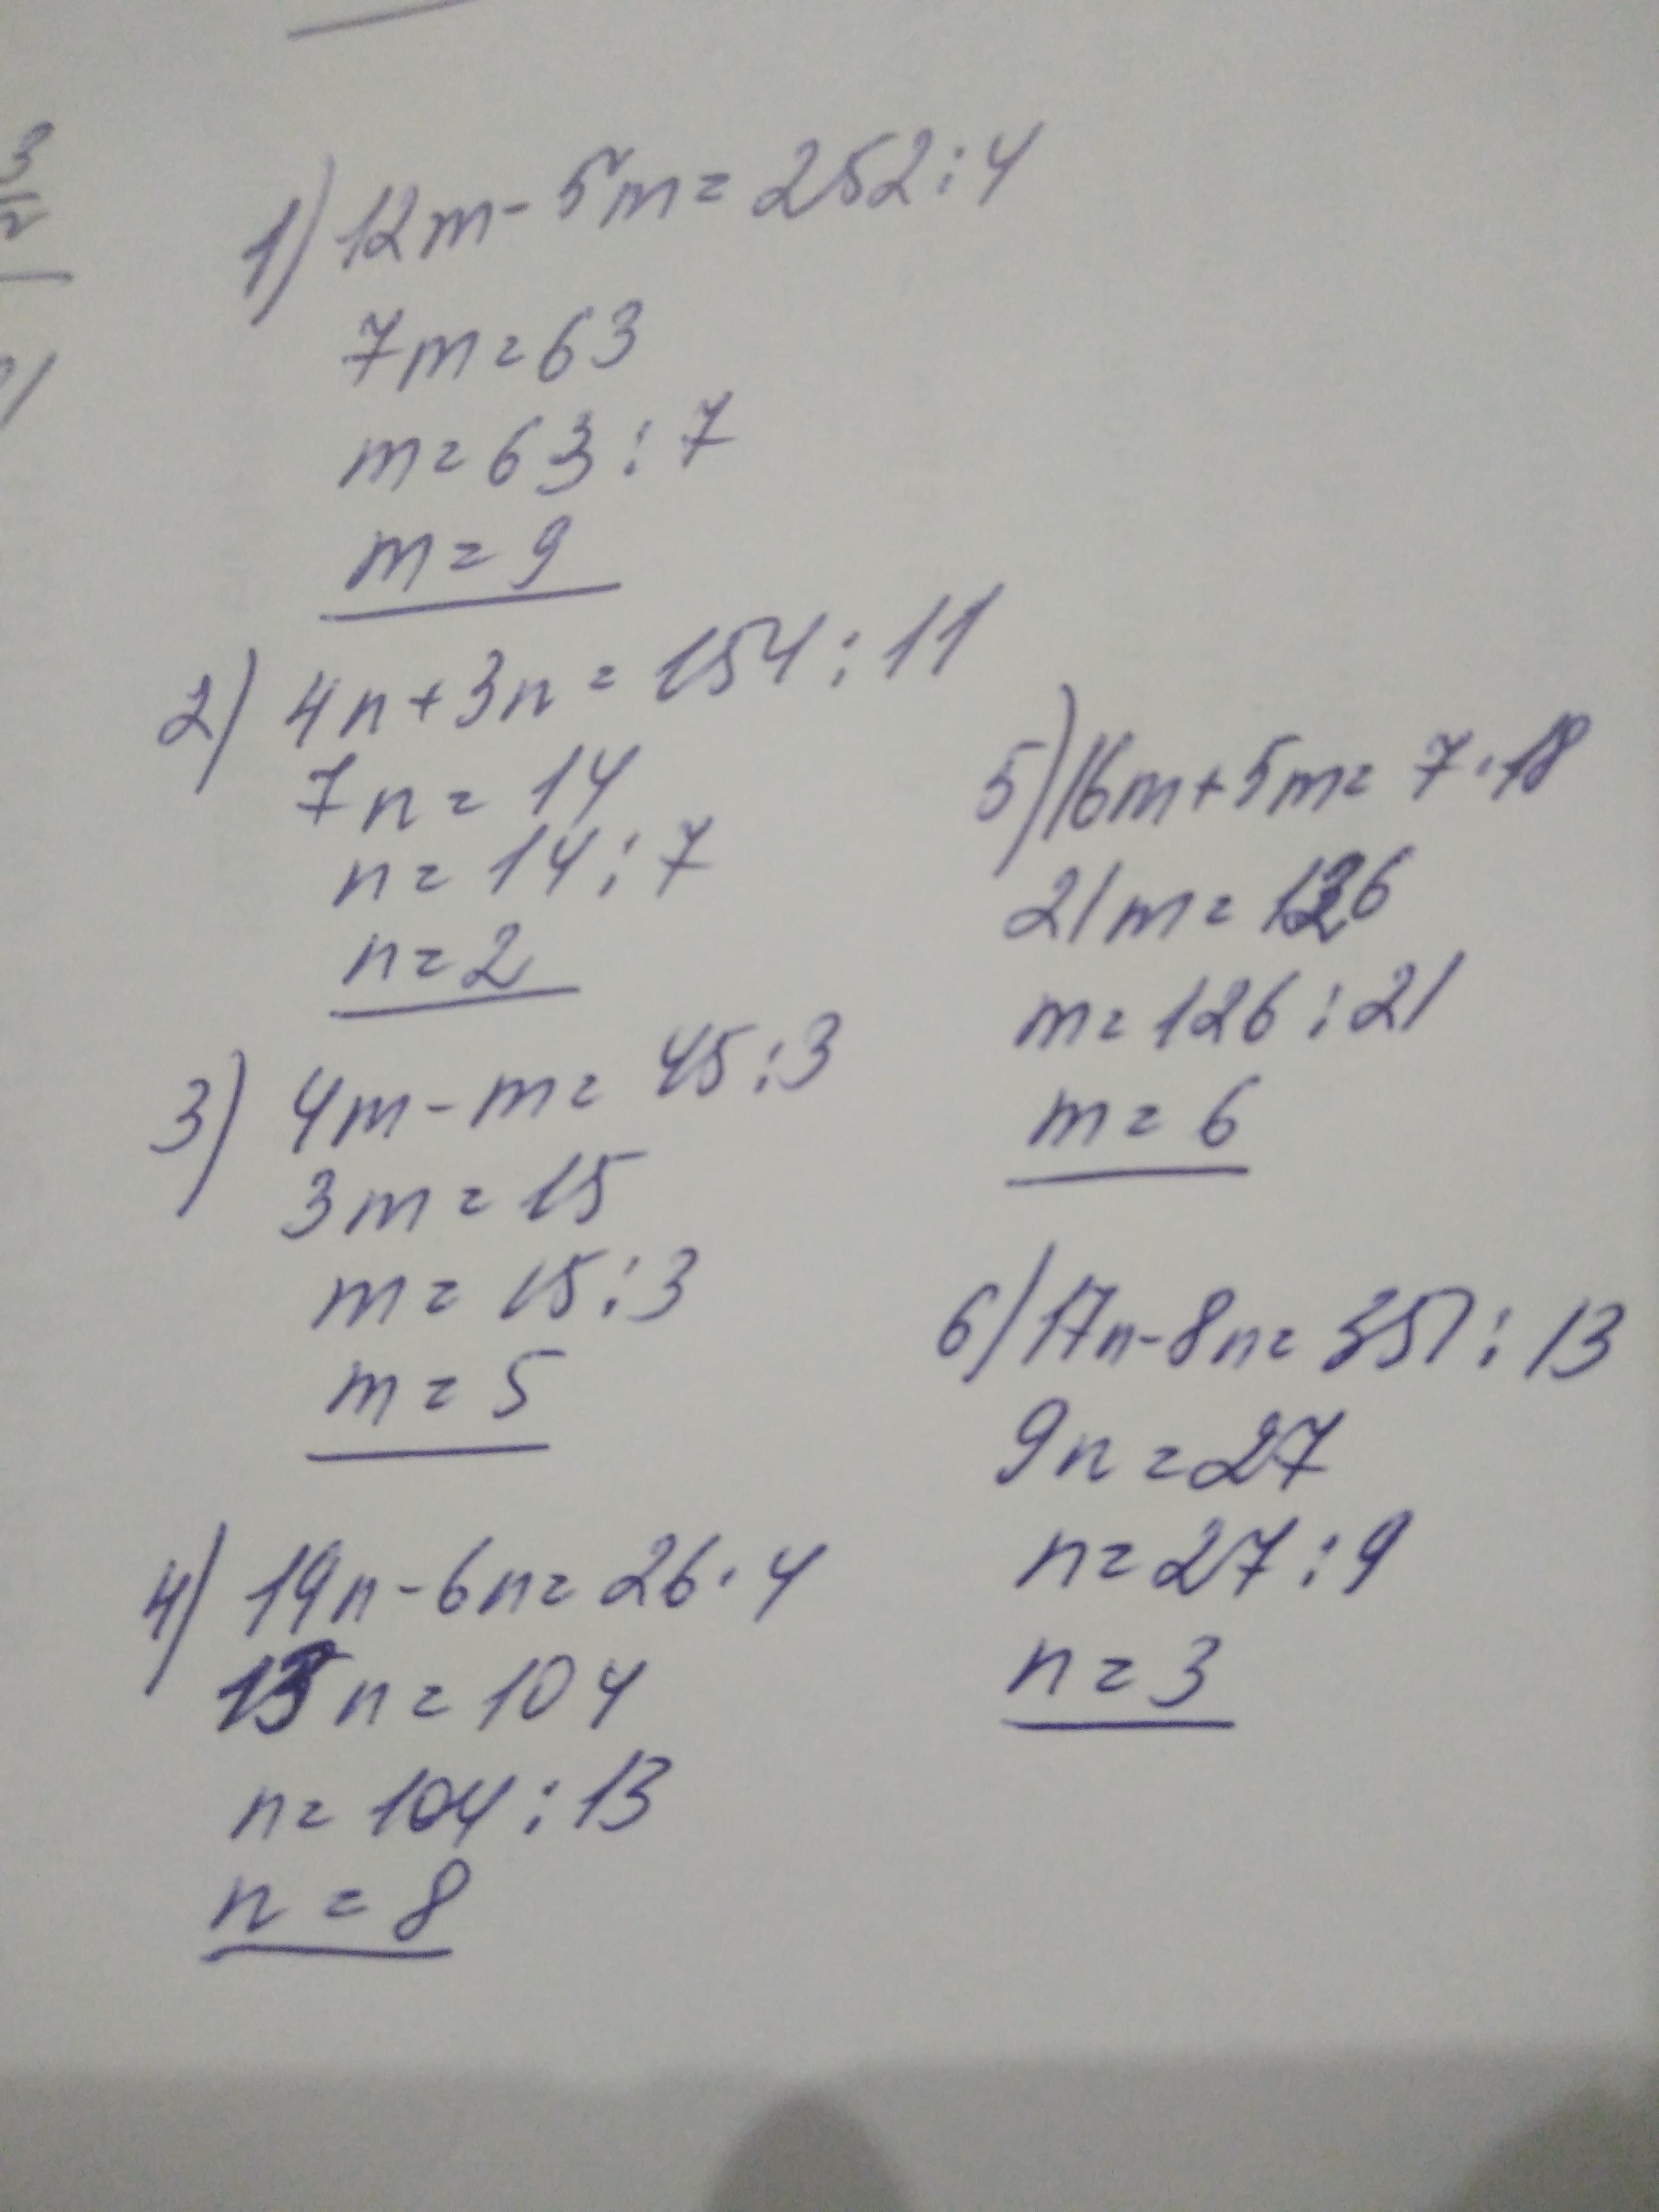 3
1) 12m - 5m = 252 : 4
7m = 63
m = 63 : 7
m = 9
2) 4n + 3n = 154 : 11
7n = 14
n = 14 : 7
n = 2
3) 4m - m = 45 : 3
3m = 15
m = 15 : 3
m = 5
4) 19n - 6n = 26 · 4
13n = 104
n = 104 : 13
n = 8
5) 16m + 5m = 7 · 18
21m = 126
m = 126 : 21
m = 6
6) 17n - 8n = 351 : 13
9n = 27
n = 27 : 9
n = 3